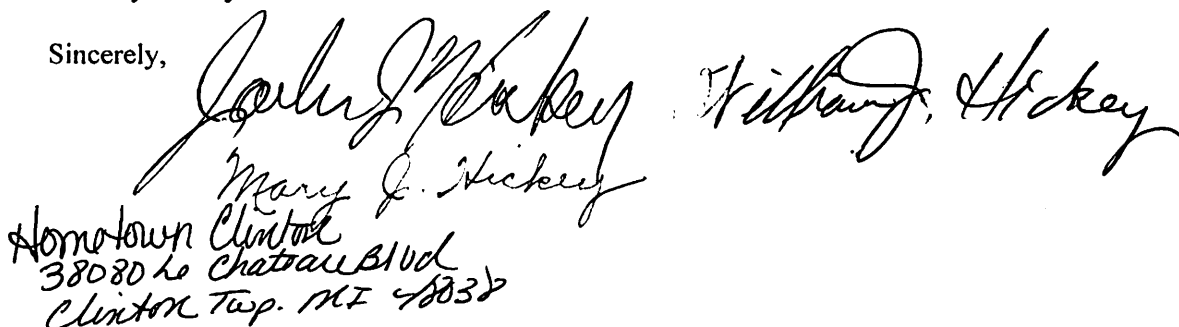 Sincerely,
John J Hickey William J. Hickey
Mary J. Hickey
Hometown Clinton
38080 Le Chateau Blvd
Clinton Twp. MI 48038